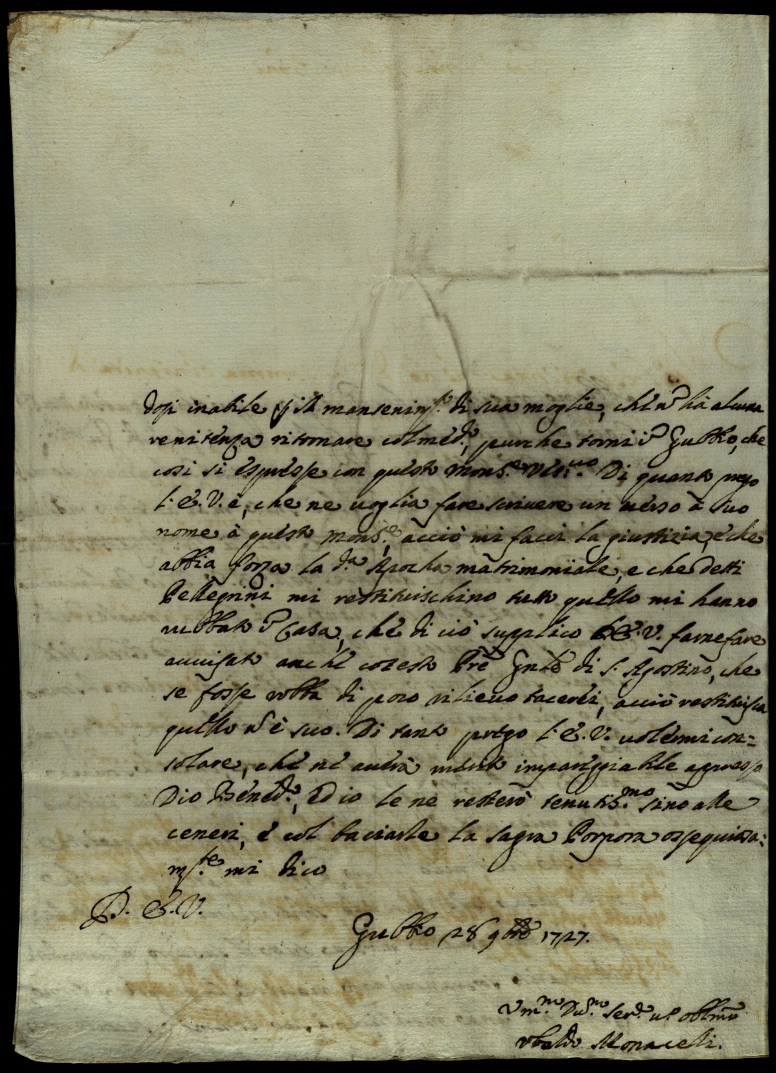 dosi inabile p il mantenim.to di sua moglie, che nõ hà alcuna
renitenza ritornare col med.o, purche torni ĩ Gubbo, che
così si espresse con questo Mons.re Di quanto prego
l'E.V. è, che ne voglia fare scrivere un verso à suo
nome à questo Mons.re, acciò mi facci la giustizia, e che
abbia forza la d.a Apocha matrimoniale, e che detti
Pellegrini mi restituischino tutto quello mi hanno
rubbato ĩ Casa, che di ciò supplico l'E.V. farne fare
avvisato anche cotesto Prẽ Gnle di S. Agostino, che
se fosse robba di poco rilievo tacerei, acciò restituisca
quello nõ è suo. Di tanto prego l'E.V. volermi con=
solare, che ne avrà merito impareggiabile appresso
Dio Bened.o, ed io le ne resterò tenutiss.mo sino alle
ceneri, e col baciarle la sagra Porpora ossequiosa=
m.te mi dico
D. E. V.
Gubbo 28 9bre 1727.
Vm.mo Dv.mo Ser.e vo. obblmo
Vbaldo Monacelli.